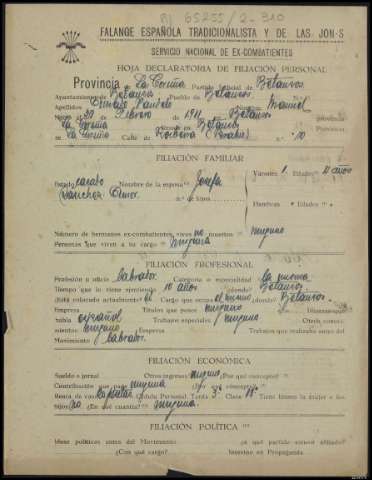 65255/2-310
FALANGE ESPAÑOLA TRADICIONALISTA Y DE LAS JON-S
SERVICIO NACIONAL DE EX-COMBATIENTES
HOJA DECLARATORIA DE FILIACIÓN PERSONAL
Provincia de La Coruña Partido Judicial de Betanzos
Ayuntamiento de Betanzos Pueblo de Betanzos
Apellidos Nombre Manuel
Nació el de Febrero de 1911 Betanzos provincia
La Coruña Betanzos provincia
La Coruña Calle de n.º 10
FILIACIÓN FAMILIAR
Estado casado Nombre de la esposa Josefa Varones 1 Edades 11 años
Sanchez n.º de hijos Hembras Edades
Número de hermanos ex-combatientes, vivos no muertos ninguno
Personas que viven a tu cargo ninguna
FILIACIÓN PROFESIONAL
Profesión u oficio labrador Categoría o especialidad la misma
Tiempo que lo viene ejerciendo 10 años ¿dónde? Betanzos
¿Está colocado actualmente? si Cargo que ocupa el mismo ¿dónde? Betanzos
Empresa Títulos que posee ninguno Idiomas que
habla español Trabajos especiales ninguno Otros conoci-
mientos ninguno Empresa Trabajos que realizaba antes del
Movimiento labrador
FILIACIÓN ECONÓMICA
Sueldo o jornal Otros ingresos ninguno ¿Por qué concepto?
Contribución que paga ninguna ¿Por qué concepto?
Renta de casa Cédula Personal Tarifa 3ª Clase Tiene bienes la mujer o los
hijos no ¿En qué cuantía? ninguna
FILIACIÓN POLÍTICA
Ideas políticas antes del Movimiento ¿a qué partido estuvo afiliado?
¿Con qué cargo? Intervino en Propaganda